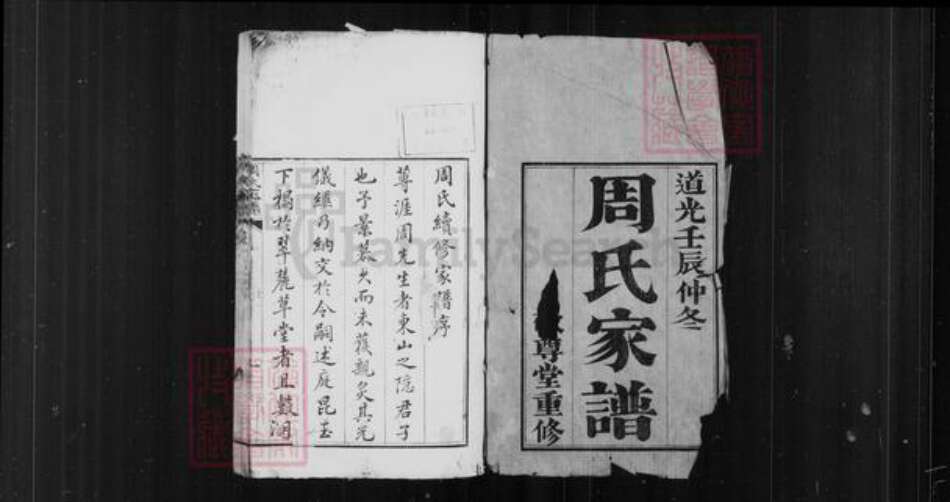 道光壬辰仲冬
周氏家譜
尊堂重修
周氏續修家譜序
蓴涯周先生者東山之隱君子
也予景慕久而未獲親炙其光
儀繼乃納交於令嗣述庭昆玉
下榻於翠麓草堂者且數
FamilySearch